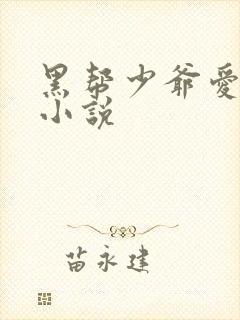 黑帮少爷爱
小説
苗永建